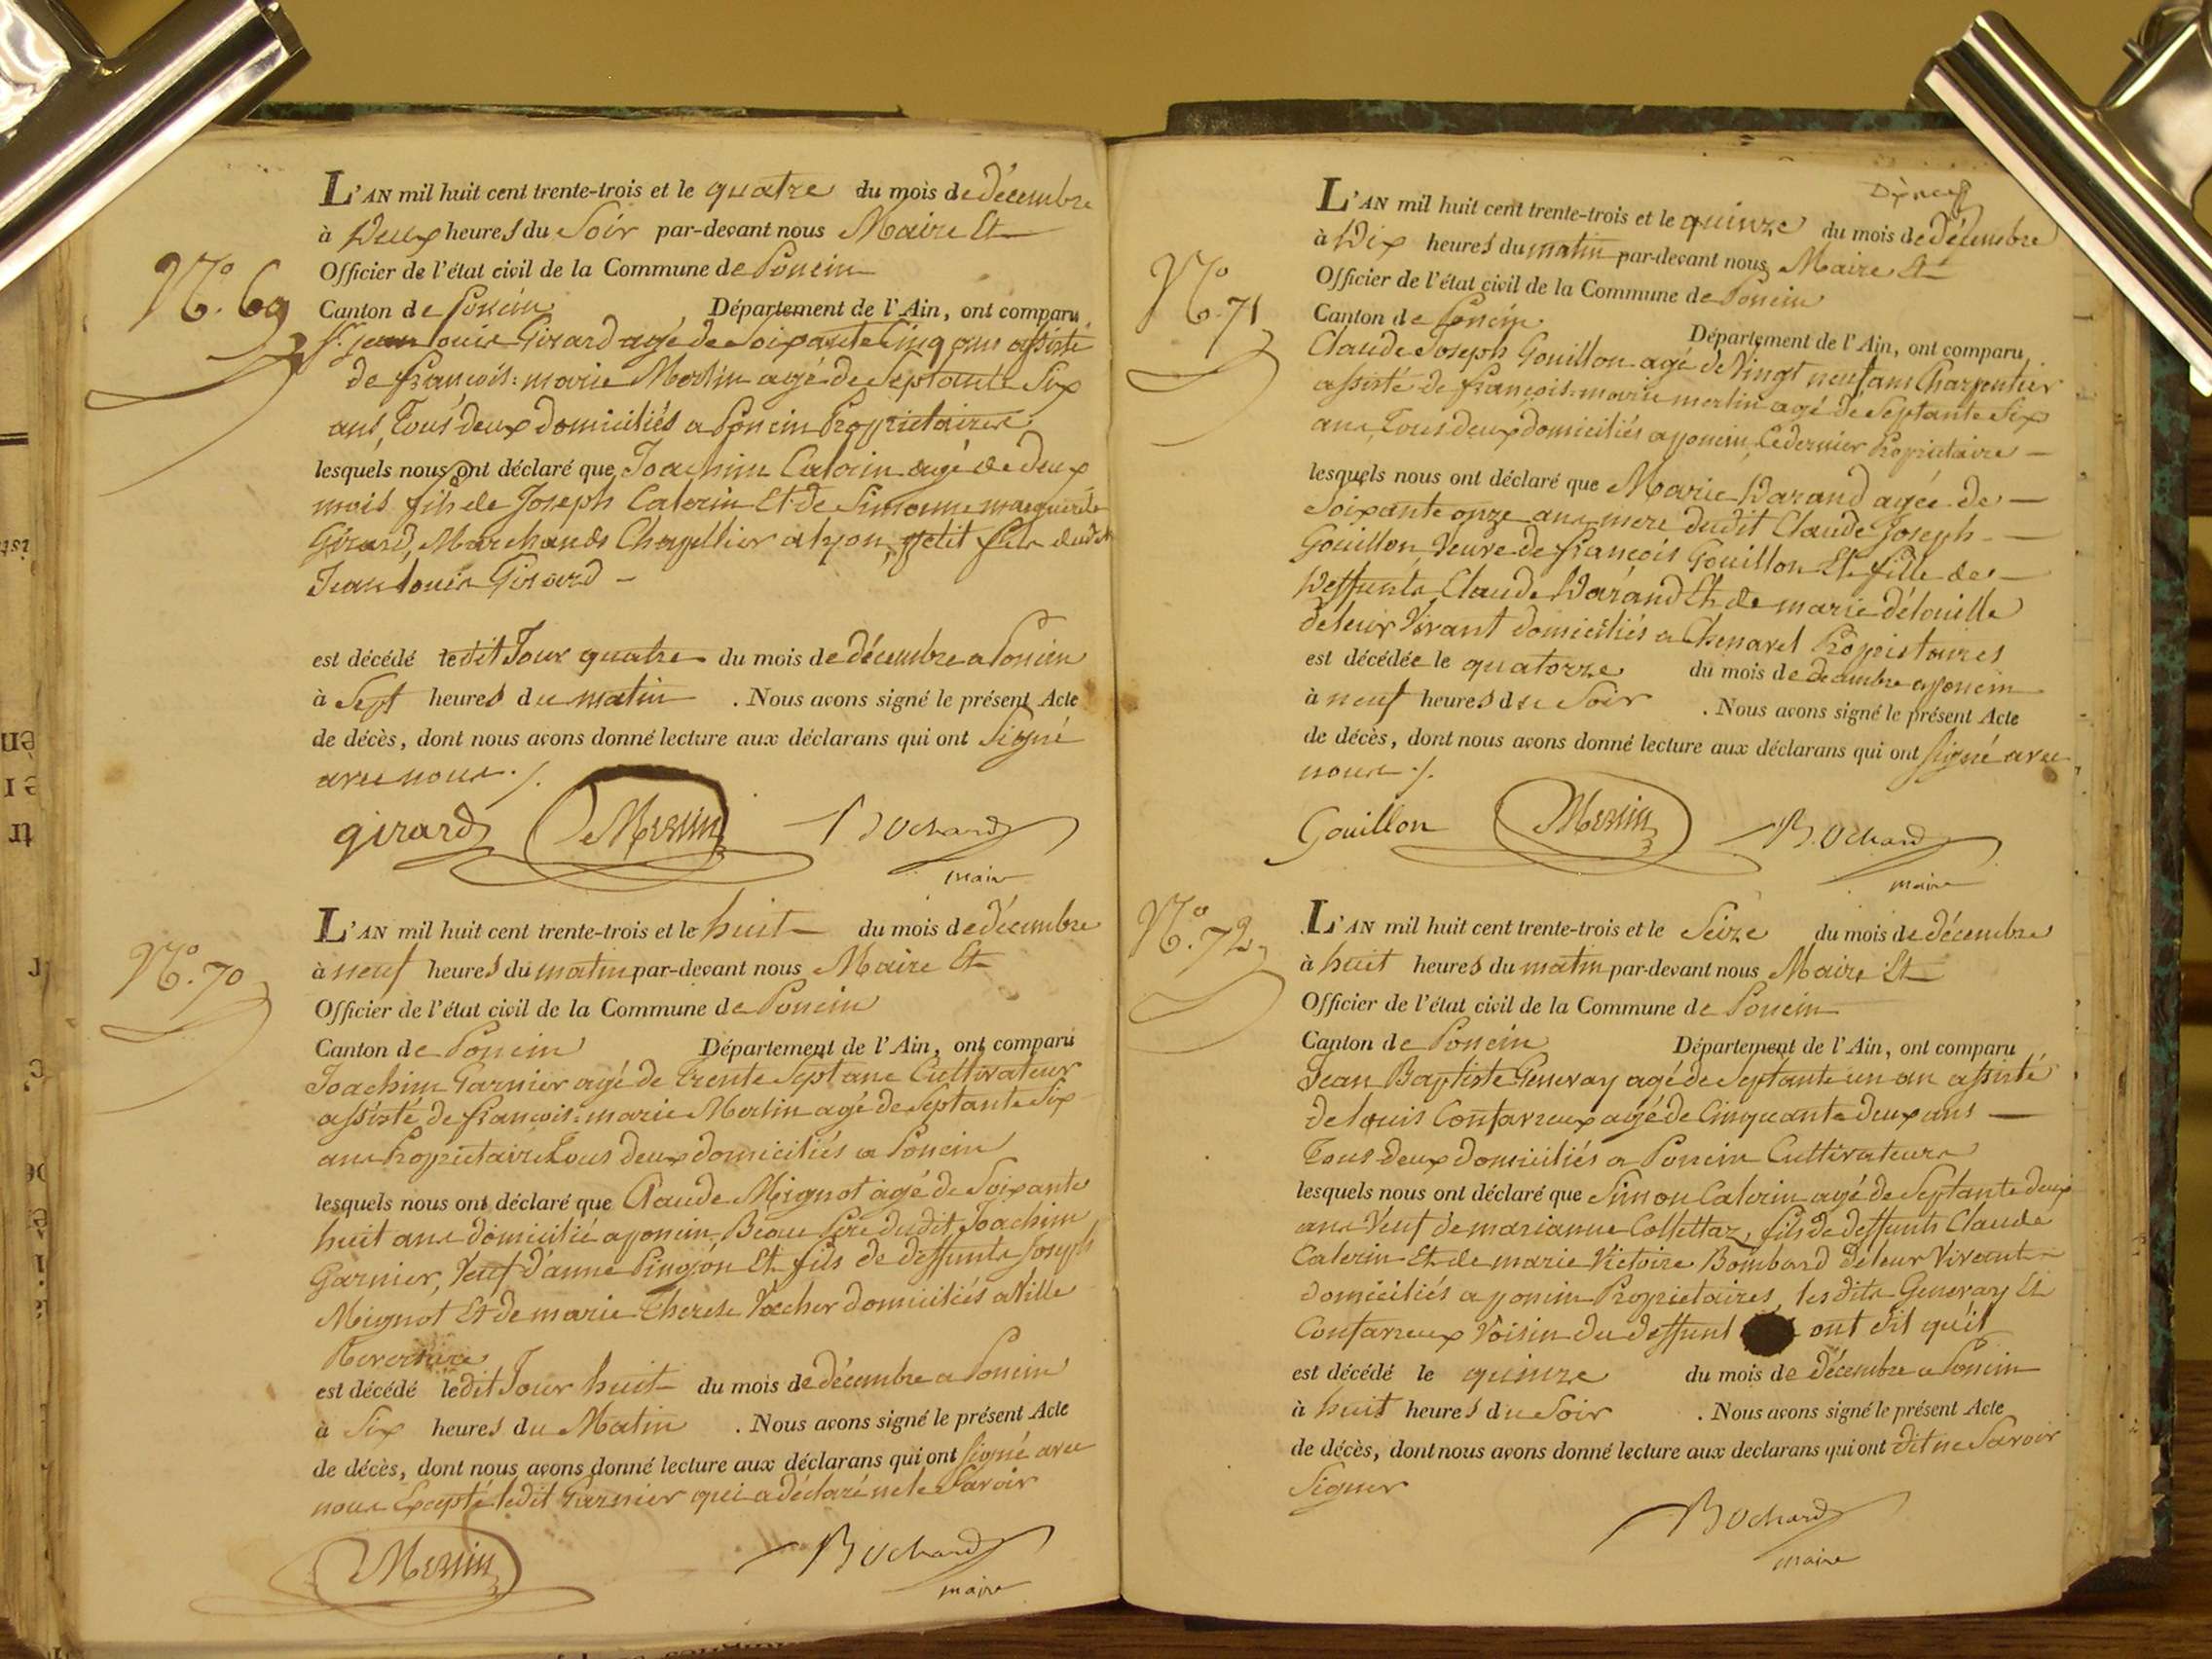 N.° 69
L'AN mil huit cent trente-trois et le quatre du mois de décembre
à Deux heures du Soir par-devant nous Maire Et
Officier de l'état civil de la Commune de Poncin
Canton de Poncin Département de l'Ain, ont comparu
Sr. jean louis Girard agé de Soixante Cinq ans assisté
de françois-marie Merlin agé de Septante Six
ans, Tous deux domiciliés a Poncin Proprietaires
lesquels nous ont déclaré que Joachim Caterin agé de deux
mois fils de Joseph Caterin Et de Simonne marguerite
Girard, Marchands Chapellier a lyon, petit fils dudit
Jean louis Girard
est décédé ledit Jour quatre du mois de décembre a Poncin
à Sept heures du matin . Nous avons signé le présent Acte
de décès, dont nous avons donné lecture aux déclarans qui ont Signé
avec nous ./.
girard Merlin Bochard
maire
N.° 70
L'AN mil huit cent trente-trois et le huit du mois de décembre
à neuf heures du matin par-devant nous Maire Et
Officier de l'état civil de la Commune de Poncin
Canton de Poncin Département de l'Ain, ont comparu
Joachim Garnier agé de Trente Sept ans Cultivateur
assisté de françois-marie Merlin agé de Septante Six
ans Proprietaire Tous deux domiciliés a Poncin
lesquels nous ont déclaré que Claude Mignot agé de Soixante
huit ans domicilié a poncin Beau Pere dudit Joachim
Garnier, Veuf d'anne Pingeon Et fils de deffunts Joseph
Mignot Et de marie Therese Vacher domiciliés a Ville
Reversure
est décédé ledit Jour huit du mois de décembre a Poncin
à Six heures du Matin . Nous avons signé le présent Acte
de décès, dont nous avons donné lecture aux déclarans qui ont Signé avec
nous Excepté ledit Garnier qui a déclaré ne le Savoir
Merlin Bochard
maire
N.° 71
L'AN mil huit cent trente-trois et le quinze du mois de décembre
à Dix heures du matin par-devant nous Maire Et
Officier de l'état civil de la Commune de Poncin
Canton de Poncin Département de l'Ain, ont comparu
Claude Joseph Gouillon agé de Vingt neuf ans Charpentier
assisté de françois-marie merlin agé de Septante Six
ans, Tous deux domiciliés a poncin, Ce dernier Proprietaire
lesquels nous ont déclaré que Marie Darand agée de
Soixante onze ans mere dudit Claude Joseph
Gouillon, Veuve de françois Gouillon Et fille de
Deffunts Claude Darand Et de marie délouille
de leur Vivant domiciliés a Chenavel Proprietaires
est décédée le quatorze du mois de decembre a poncin
à neuf heures du Soir . Nous avons signé le présent Acte
de décès, dont nous avons donné lecture aux déclarans qui ont Signé avec
nous ./.
Gouillon Merlin Bochard
maire
N.° 72
L'AN mil huit cent trente-trois et le Seize du mois de décembre
à huit heures du matin par-devant nous Maire Et
Officier de l'état civil de la Commune de Poncin
Canton de Poncin Département de l'Ain, ont comparu
Jean Baptiste Genevay agé de Septante un an assisté
de louis Confavreux agé de Cinquante deux ans
Tous deux domiciliés a Poncin Cultivateurs
lesquels nous ont déclaré que Simon Caterin agé de Septante deux
ans Veuf de marianne Collettaz, fils de deffunts Claude
Caterin Et de marie Victoire Bombard de leur Vivant
domiciliés a poncin Proprietaires, les dits Genevay Et
Confavreux Voisin du deffunt ont dit qu'il
est décédé le quinze du mois de décembre a Poncin
à huit heures du Soir . Nous avons signé le présent Acte
de décès, dont nous avons donné lecture aux declarans qui ont dit ne Savoir
Signer
Bochard
maire